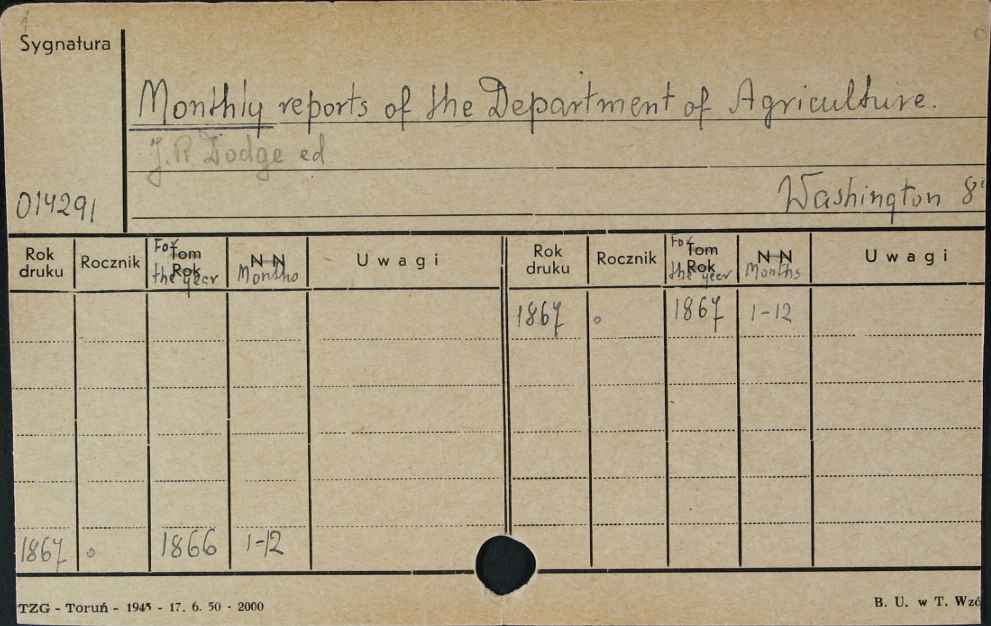 Sygnatura
Monthly reports of the Department of Agriculture.
J. R Dodge ed
014291
Washington 8°
Rok druku Rocznik For Tom the year Rok N N Months Uwagi Rok druku Rocznik For Tom the year Rok N N Months Uwagi
1867 o 1867 1-12
1867 o 1866 1-12
TZG - Toruń - 1945 - 17. 6. 50 - 2000
B. U. w T. Wzó